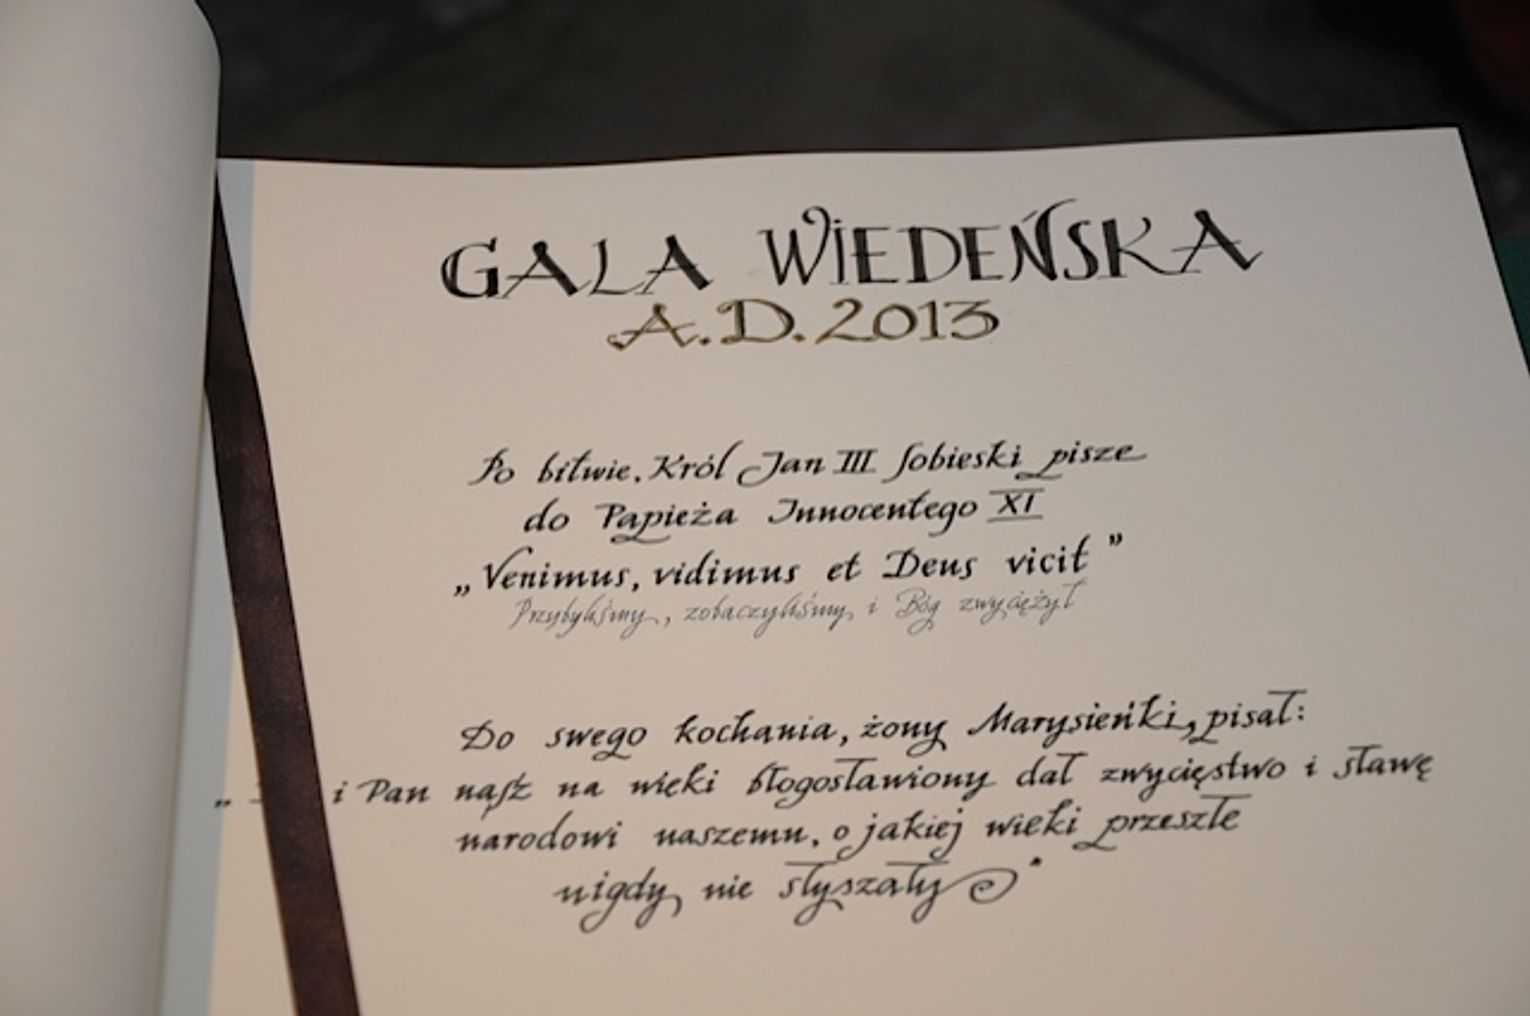 GALA WIEDEŃSKA
A.D. 2013
Po bitwie, Król Jan III Sobieski pisze
do Papieża Innocentego XI
„Venimus, vidimus et Deus vicit”
Przybyliśmy, zobaczyliśmy i Bóg zwyciężył
Do swego kochania, żony Marysieńki, pisał:
„ i Pan nasz na wieki błogosławiony dał zwycięstwo i sławę
narodowi naszemu, o jakiej wieki przeszłe
nigdy nie słyszały”